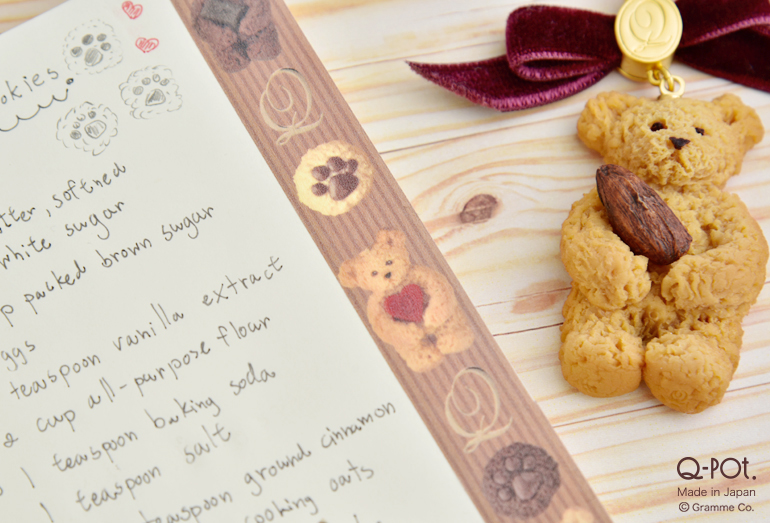 okies
tter, softned
white sugar
p packed brown sugar
ggs
teaspoon vainilla extract
cup all-purpose flour
1 teaspoon baking soda
1 teaspoon salt
teaspoon ground cinnamon
cooking oats
Q
Q
Q
Q-POT.
Made in Japan
© Gramme Co.